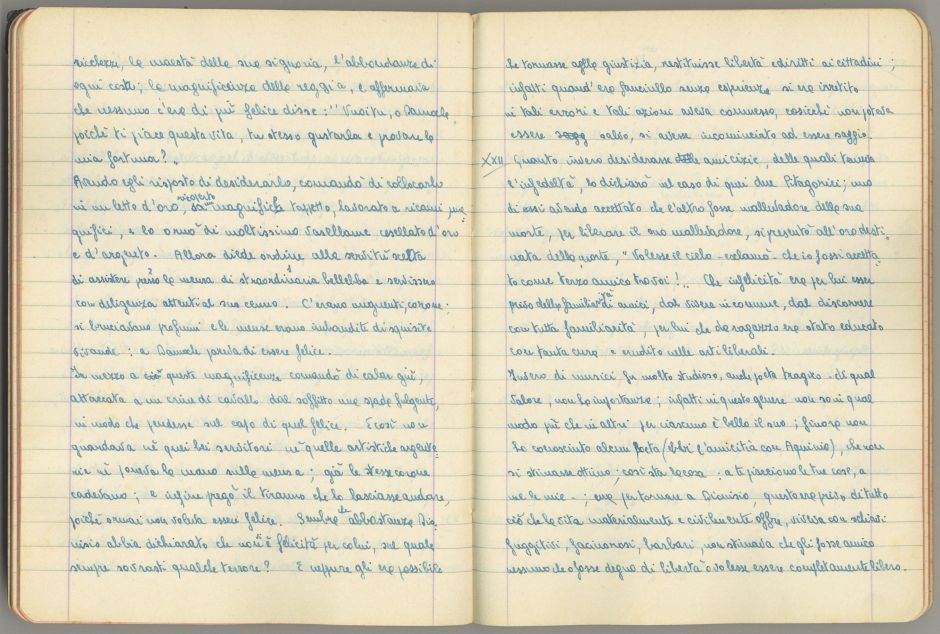 ricchezze, la maestà della sua signoria, l'abbondanza di
ogni cosa, la magnificenza della reggia, e affermava
che nessuno c'era di più felice disse: "Vuoi tu, o Damocle,
poiché ti piace questa vita, tu stesso gustarla e provare la
mia fortuna?".
Avendo egli risposto di desiderarlo, comandò di collocarlo
in un letto d'oro, ricoperto da un magnifico tappeto, lavorato a ricami ma
gnifici, e lo ornò di moltissimo vasellame cesellato d'oro
e d'argento. Allora diede ordine alla servitù scelta
di assistere presso la mensa di straordinaria bellezza e servissero
con diligenza attenti al suo cenno. C'erano unguenti, corone:
si bruciavano profumi e le mense erano imbandite di squisite
vivande: e Damocle pareva di essere felice.
In mezzo a ciò queste magnificenze comandò di calar giù,
attaccata a un crine di cavallo dal soffitto una spada fulgente,
in modo che pendesse sul capo di quel felice. E così non
guardava né quei bei servitori né quelle artistiche argente
rie né poneva la mano sulla mensa; già le stesse corone
cadevano; e infine pregò il tiranno che lo lasciasse andare,
poiché ormai non voleva essere felice. Sembra che abbastanza Dio
nisio abbia dichiarato che non v'è felicità per colui, sul quale
sempre sovrasti qualche terrore? E neppure gli era possibile
che tornasse alla giustizia, restituisse libertà e diritti ai cittadini;
infatti quand'era fanciullo senza esperienza si era irretito
in tali errori e tali azioni aveva commesso, cosicché non poteva
essere salvo, si avesse incominciato ad essere saggio.
XXII Quanto invero desiderasse amicizie, delle quali temeva
l'infedeltà, lo dichiarò nel caso di quei due Pitagorici; uno
di essi avendo accettato che l'altro fosse mallevadore della sua
morte, per liberare il suo mallevadore, si presentò all'ora desti
nata della morte, "Volesse il cielo - esclamò - che io fossi accetta
to come terzo amico tra voi!". Che infelicità era per lui esser
privo della familiarità di amici, dal vivere in comune, dal discorrere
con tutta familiarità, per lui che da ragazzo era stato educato
con tanta cura e erudito nelle arti liberali.
Invero di musici fu molto studioso, anche poeta tragico - di qual
valore, non ha importanza; infatti in questo genere non so in qual
modo più che in altri per ciascuno è bello il suo; finora non
ho conosciuto alcun poeta (ebbi l'amicizia con Aquinio), che non
si stimasse ottimo; così sta la cosa: a te piacciono le tue cose, a
me le mie -; ma per tornare a Dionisio, questo era privo di tutto
ciò che la vita materialmente e civilmente offre, viveva con schiavi
fuggitivi, facinorosi, barbari, non stimava che gli fosse amico
nessuno che o fosse degno di libertà o volesse essere completamente libero.